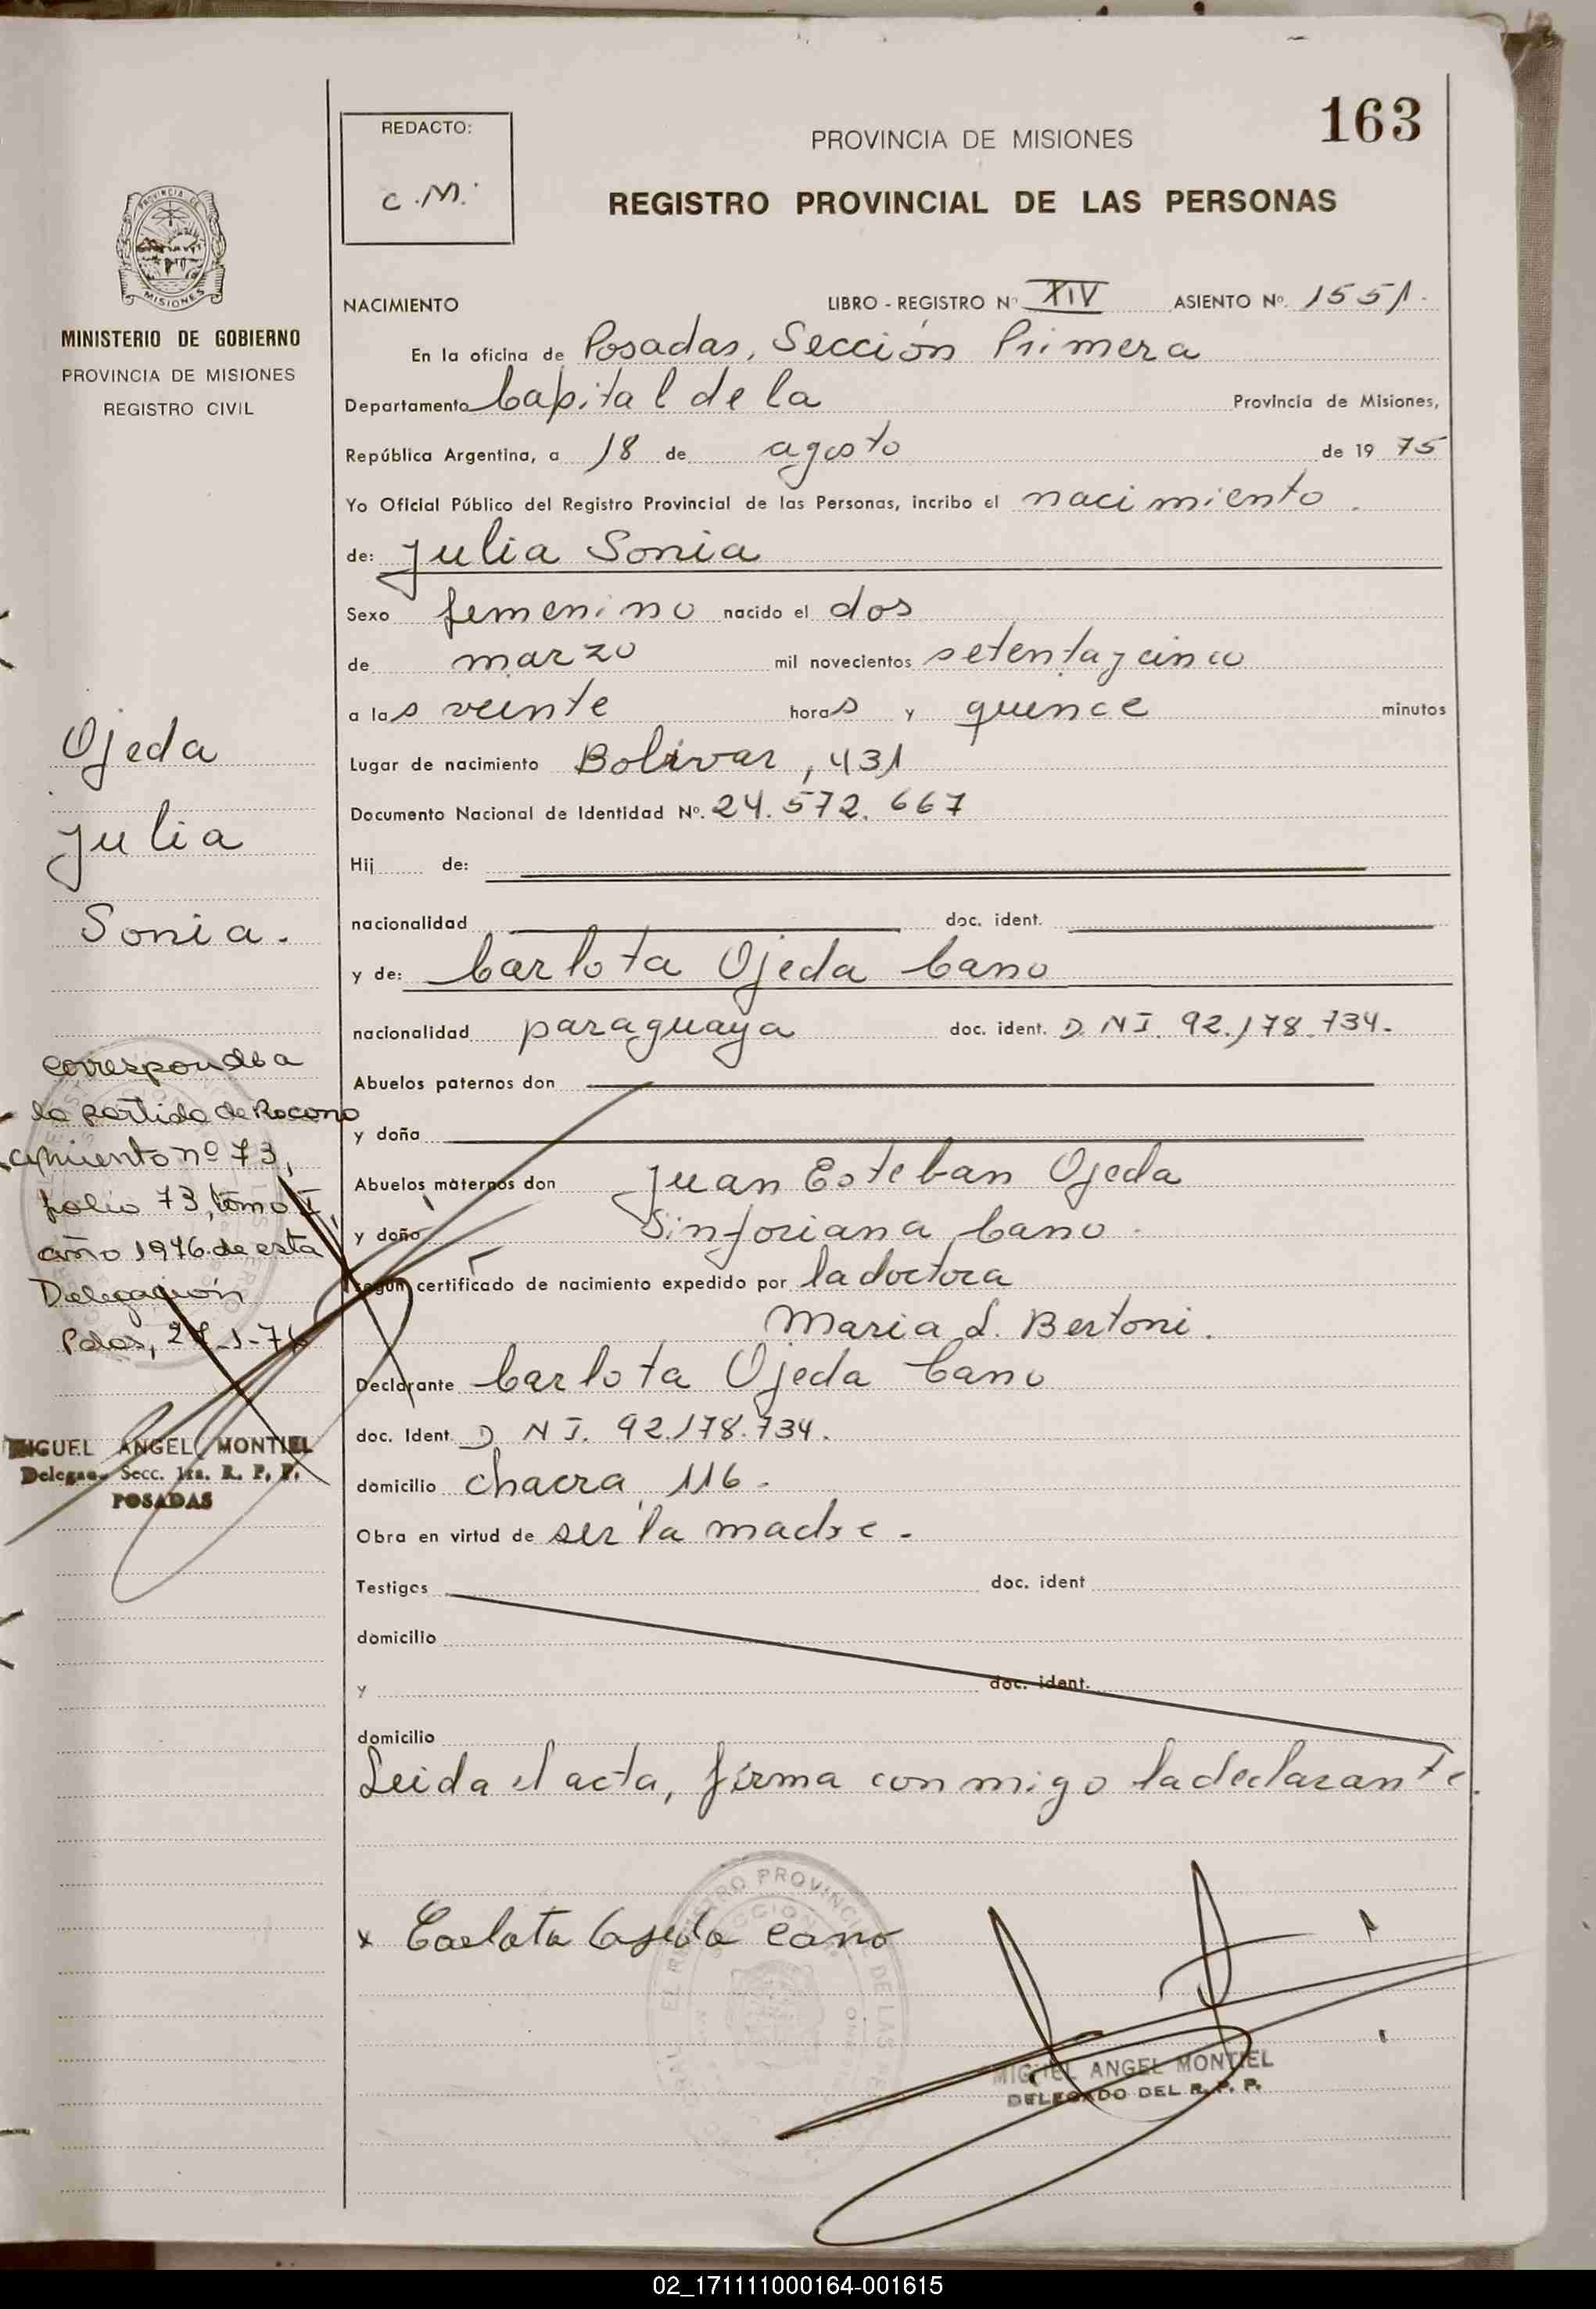 163
REDACTO:
C.M.
PROVINCIA DE MISIONES
REGISTRO PROVINCIAL DE LAS PERSONAS
MISIONES
MINISTERIO DE GOBIERNO
PROVINCIA DE MISIONES
REGISTRO CIVIL
NACIMIENTO LIBRO - REGISTRO Nº XIV ASIENTO Nº 1551.
En la oficina de Posadas, Sección Primera
Departamento Capital de la Provincia de Misiones,
República Argentina, a 18 de agosto de 19 75
Yo Oficial Público del Registro Provincial de las Personas, incribo el nacimiento.
de: Julia Sonia
Sexo femenino nacido el dos
de marzo mil novecientos setenta y cinco
a las veinte horas y quince minutos
Lugar de nacimiento Bolívar, 431
Documento Nacional de Identidad Nº. 24.572.667
Hij de:
nacionalidad doc. ident.
y de: Carlota Ojeda Cano
nacionalidad paraguaya doc. ident. D.N.I. 92.178.734.
Abuelos paternos don
y doña
Abuelos maternos don Juan Esteban Ojeda
y doña Sinforiana Cano.
según certificado de nacimiento expedido por la doctora
Maria L. Bertoni.
Declarante Carlota Ojeda Cano
doc. Ident. D.N.I. 92.178.734.
domicilio chacra 116.
Obra en virtud de ser la madre.
Testigos doc. ident
domicilio
y doc. ident.
domicilio
Leida el acta, firma conmigo la declarante.
x Carlota Ojeda Cano
MIGUEL ANGEL MONTIEL
DELEGADO DEL R. P. P.
Ojeda
Julia
Sonia.
corresponde a
la partida de Recono
cimiento nº 73,
folio 73, tomo I,
año 1976 de esta
Delegación
Pdas,
MIGUEL ANGEL MONTIEL
Delegado Secc. 1ra. R. P. P.
POSADAS
02_171111000164-001615